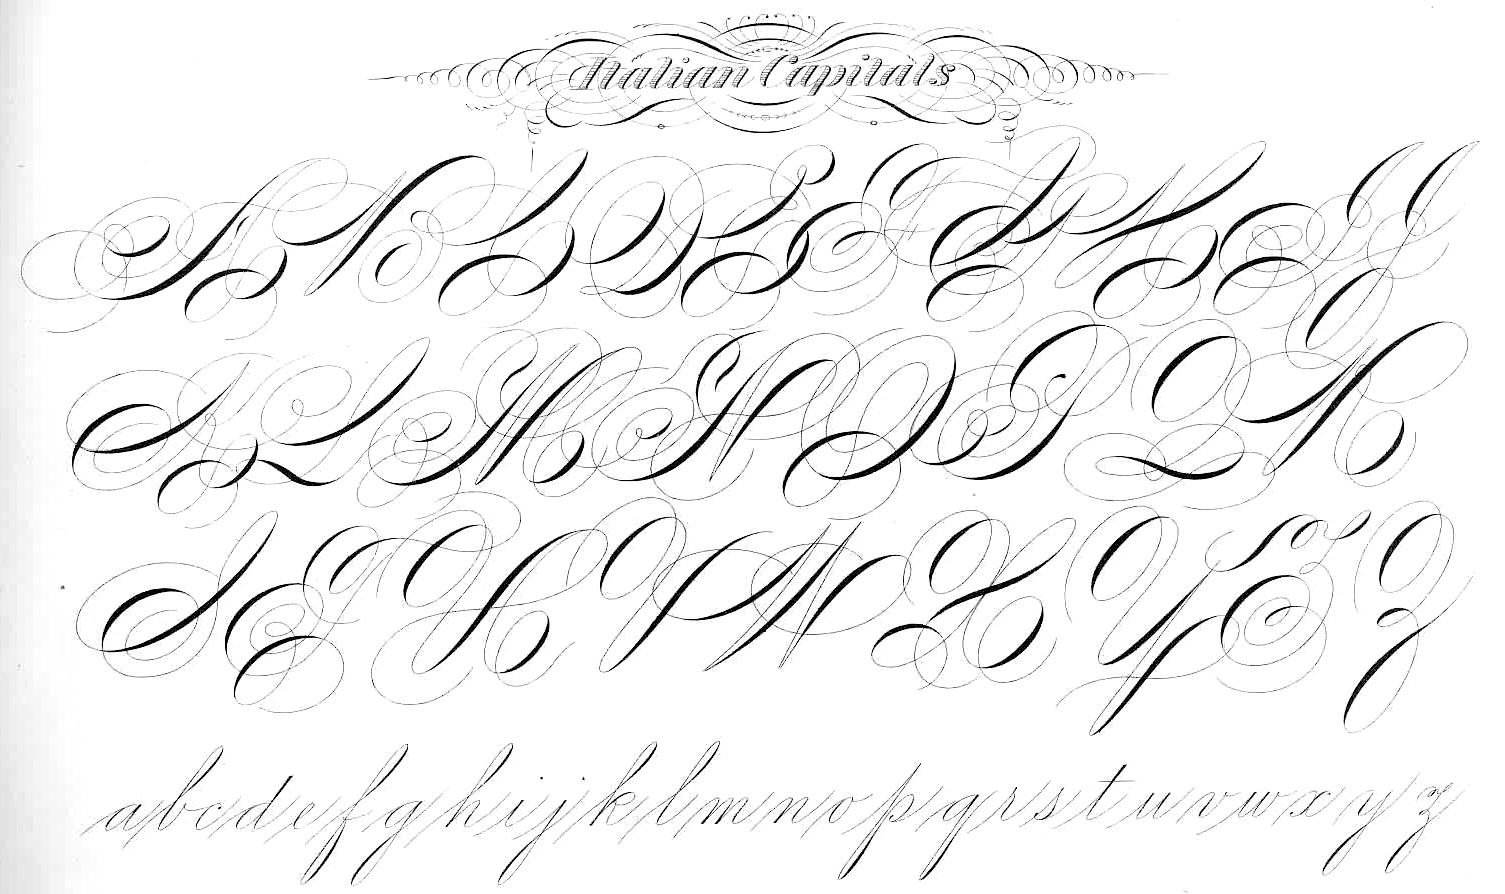 Italian Capitals
A B C D E F G H I J
K L M N O P Q R
S T U V W X Y Z Z
a b c d e f g h i j k l m n o p q r s t u v w x y z